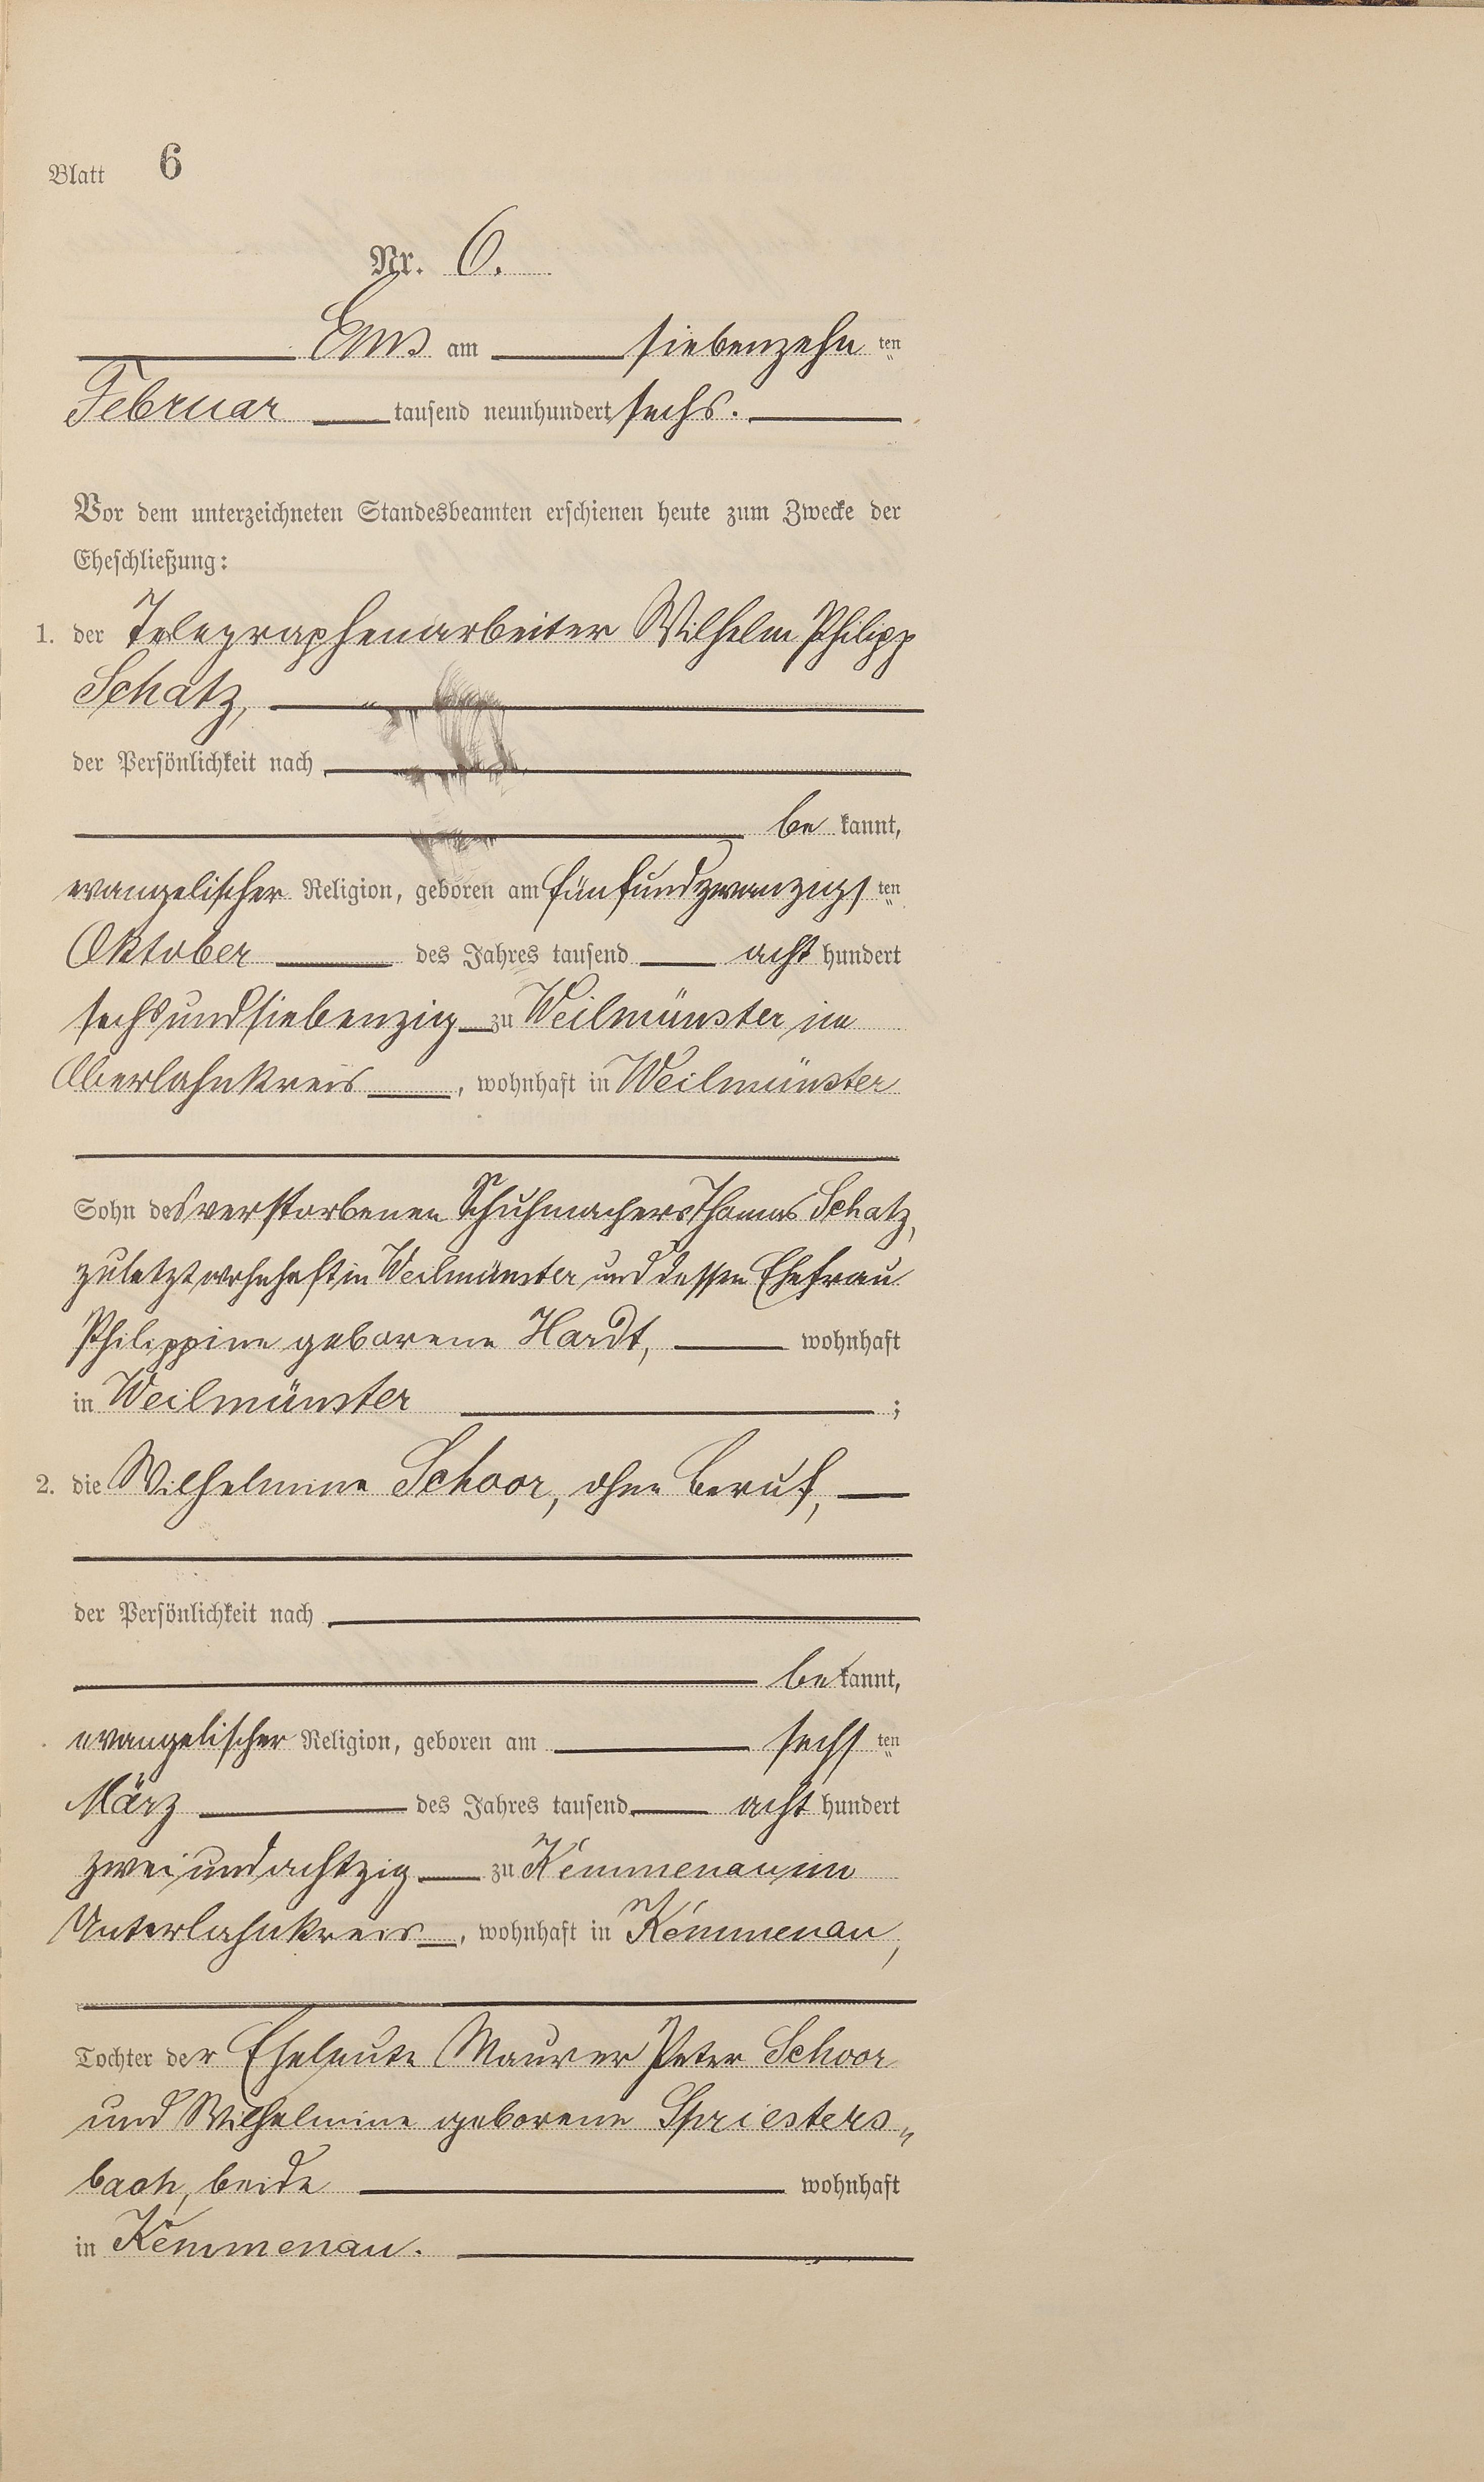 Blatt 6
Nr. 6.
Ems am siebenzehnten
Februar tausend neunhundert sechs.
Vor dem unterzeichneten Standesbeamten erschienen heute zum Zwecke der
Eheschließung:
1. der Telegraphenarbeiter Wilhelm Philipp
Schatz,
der Persönlichkeit nach
be kannt,
evangelischer Religion, geboren am fünfundzwanzigsten
Oktober des Jahres tausend acht hundert
sechsundsiebenzig zu Weilmünster im
Oberlahnkreis, wohnhaft in Weilmünster
Sohn des verstorbenen Schuhmachers Thomas Schatz,
zuletzt wohnhaft in Weilmünster und dessen Ehefrau
Philippine geborene Hardt, wohnhaft
in Weilmünster ;
2. die Wilhelmine Schoor, ohne Beruf,
der Persönlichkeit nach
be kannt,
evangelischer Religion, geboren am sechsten
März des Jahres tausend acht hundert
zweiundachtzig zu Kemmenau im
Unterlahnkreis, wohnhaft in Kemmenau,
Tochter der Eheleute Maurer Peter Schoor
und Wilhelmine geborene Spriesters„
bach, beide wohnhaft
in Kemmenau.